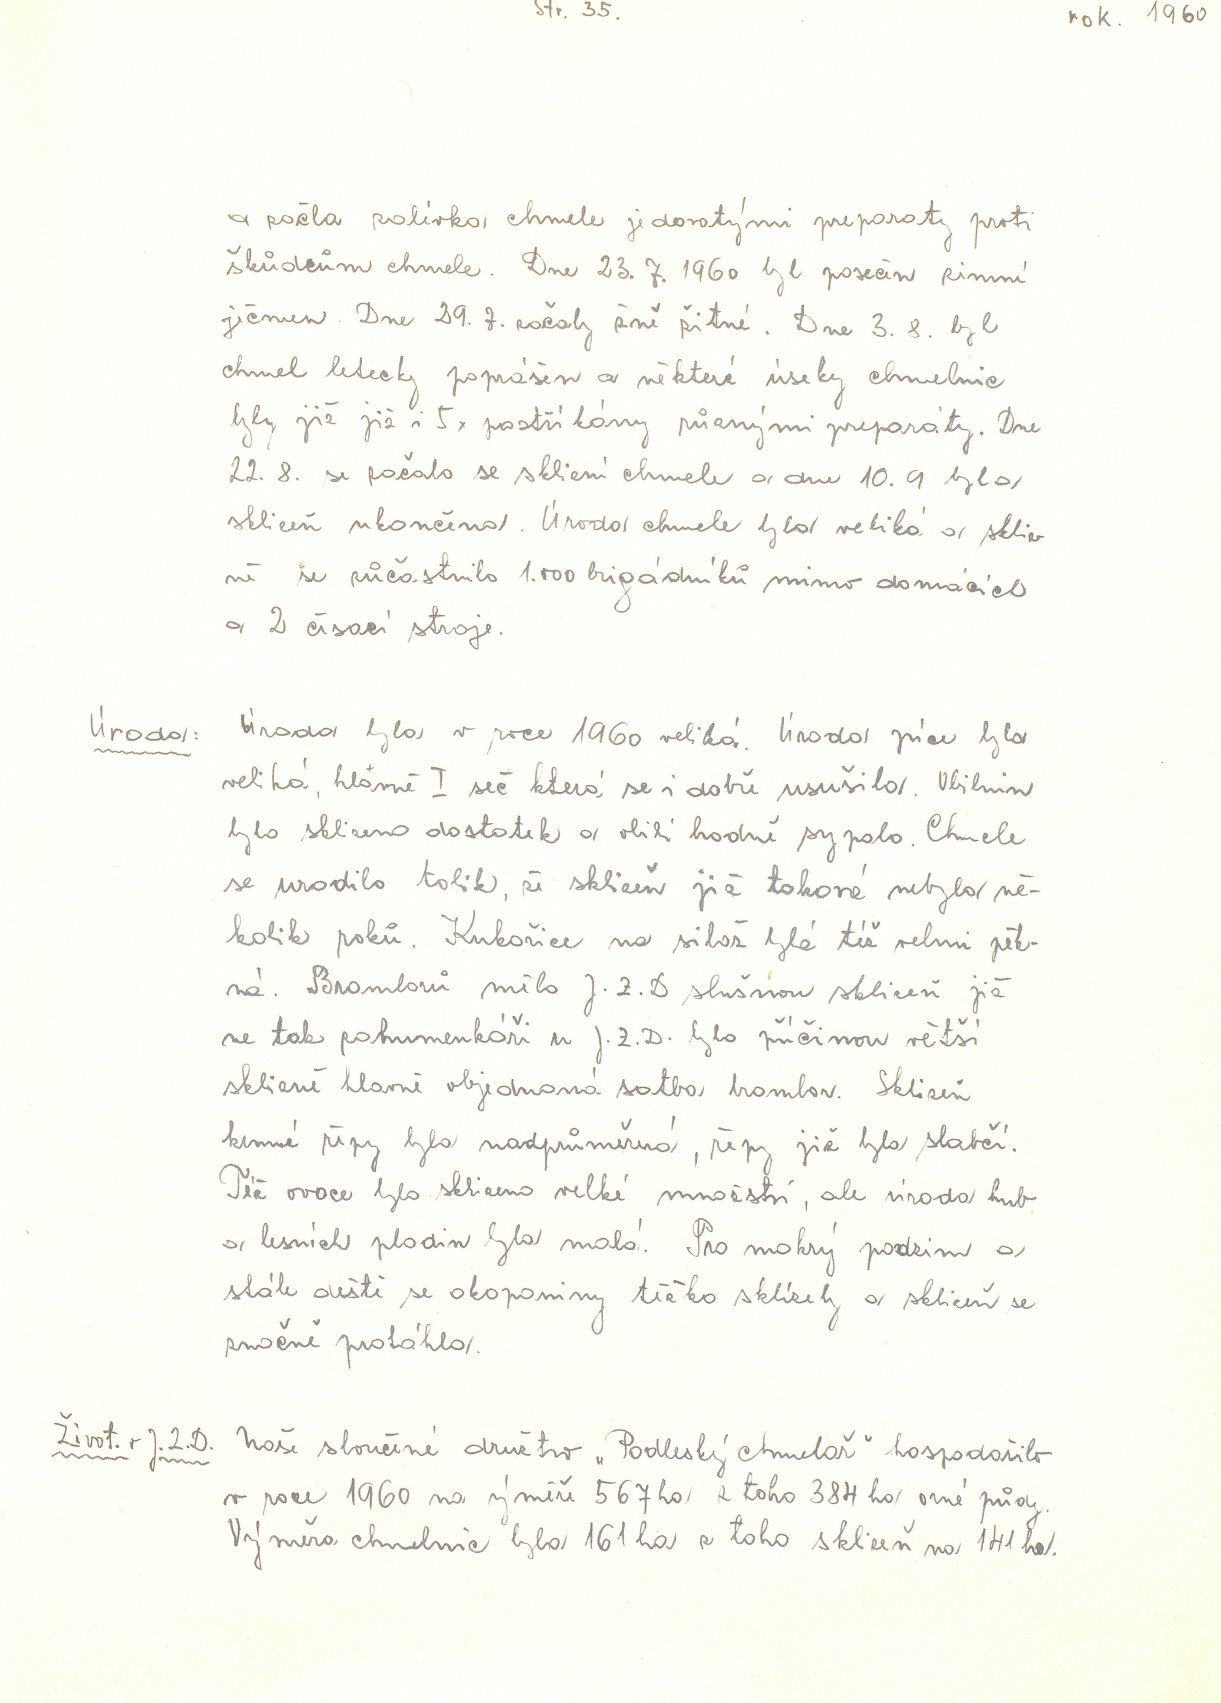 Str. 35.
rok. 1960
a začla zalívka chmele jedovatými preparaty proti
škůdcům chmele. Dne 23. 7. 1960 byl posečen zimní
ječmen. Dne 29. 7. začaly žně žitné. Dne 3. 8. byl
chmel letecky poprášen a některé úseky chmelnic
byly již již i 5x postříkány různými preparáty. Dne
22. 8. se začalo se sklizní chmele a dne 10. 9 byla
sklizeň ukončena. Úroda chmele byla veliká a skliz
ně se zůčastnilo 1.000 brigádníků mimo domácích
a 2 česací stroje.
Úroda: Úroda byla v roce 1960 veliká. Úroda píce byla
veliká, hlavně I seč která se i dobře usušila. Obilnin
bylo sklizeno dostatek a obilí hodně sypalo. Chmele
se urodilo tolik, že sklizeň již taková nebyla ně-
kolik roků. Kukuřice na siláž bylá též velmi pěk-
ná. Bramborů mělo J.Z.D slušnou sklizeň již
ne tak záhumenkáři u J.Z.D. bylo příčinou větší
sklizně hlavně objednaná sadba brambor. Sklizeň
krmné řepy byla nadprůměrná, řepy již byla slabčí.
Též ovoce bylo sklizeno velké množství, ale úroda hub
a lesních plodin byla malá. Pro mokrý podzim a
stálé deště se okopaniny těžko sklízely a sklizeň se
značně protáhla.
Život v J.Z.D. Naše sloučené družstvo „Podleský chmelař" hospodařilo
v roce 1960 na výměře 567 ha z toho 384 ha orné půdy.
Výměra chmelnic byla 161 ha z toho sklizeň na 141 ha.